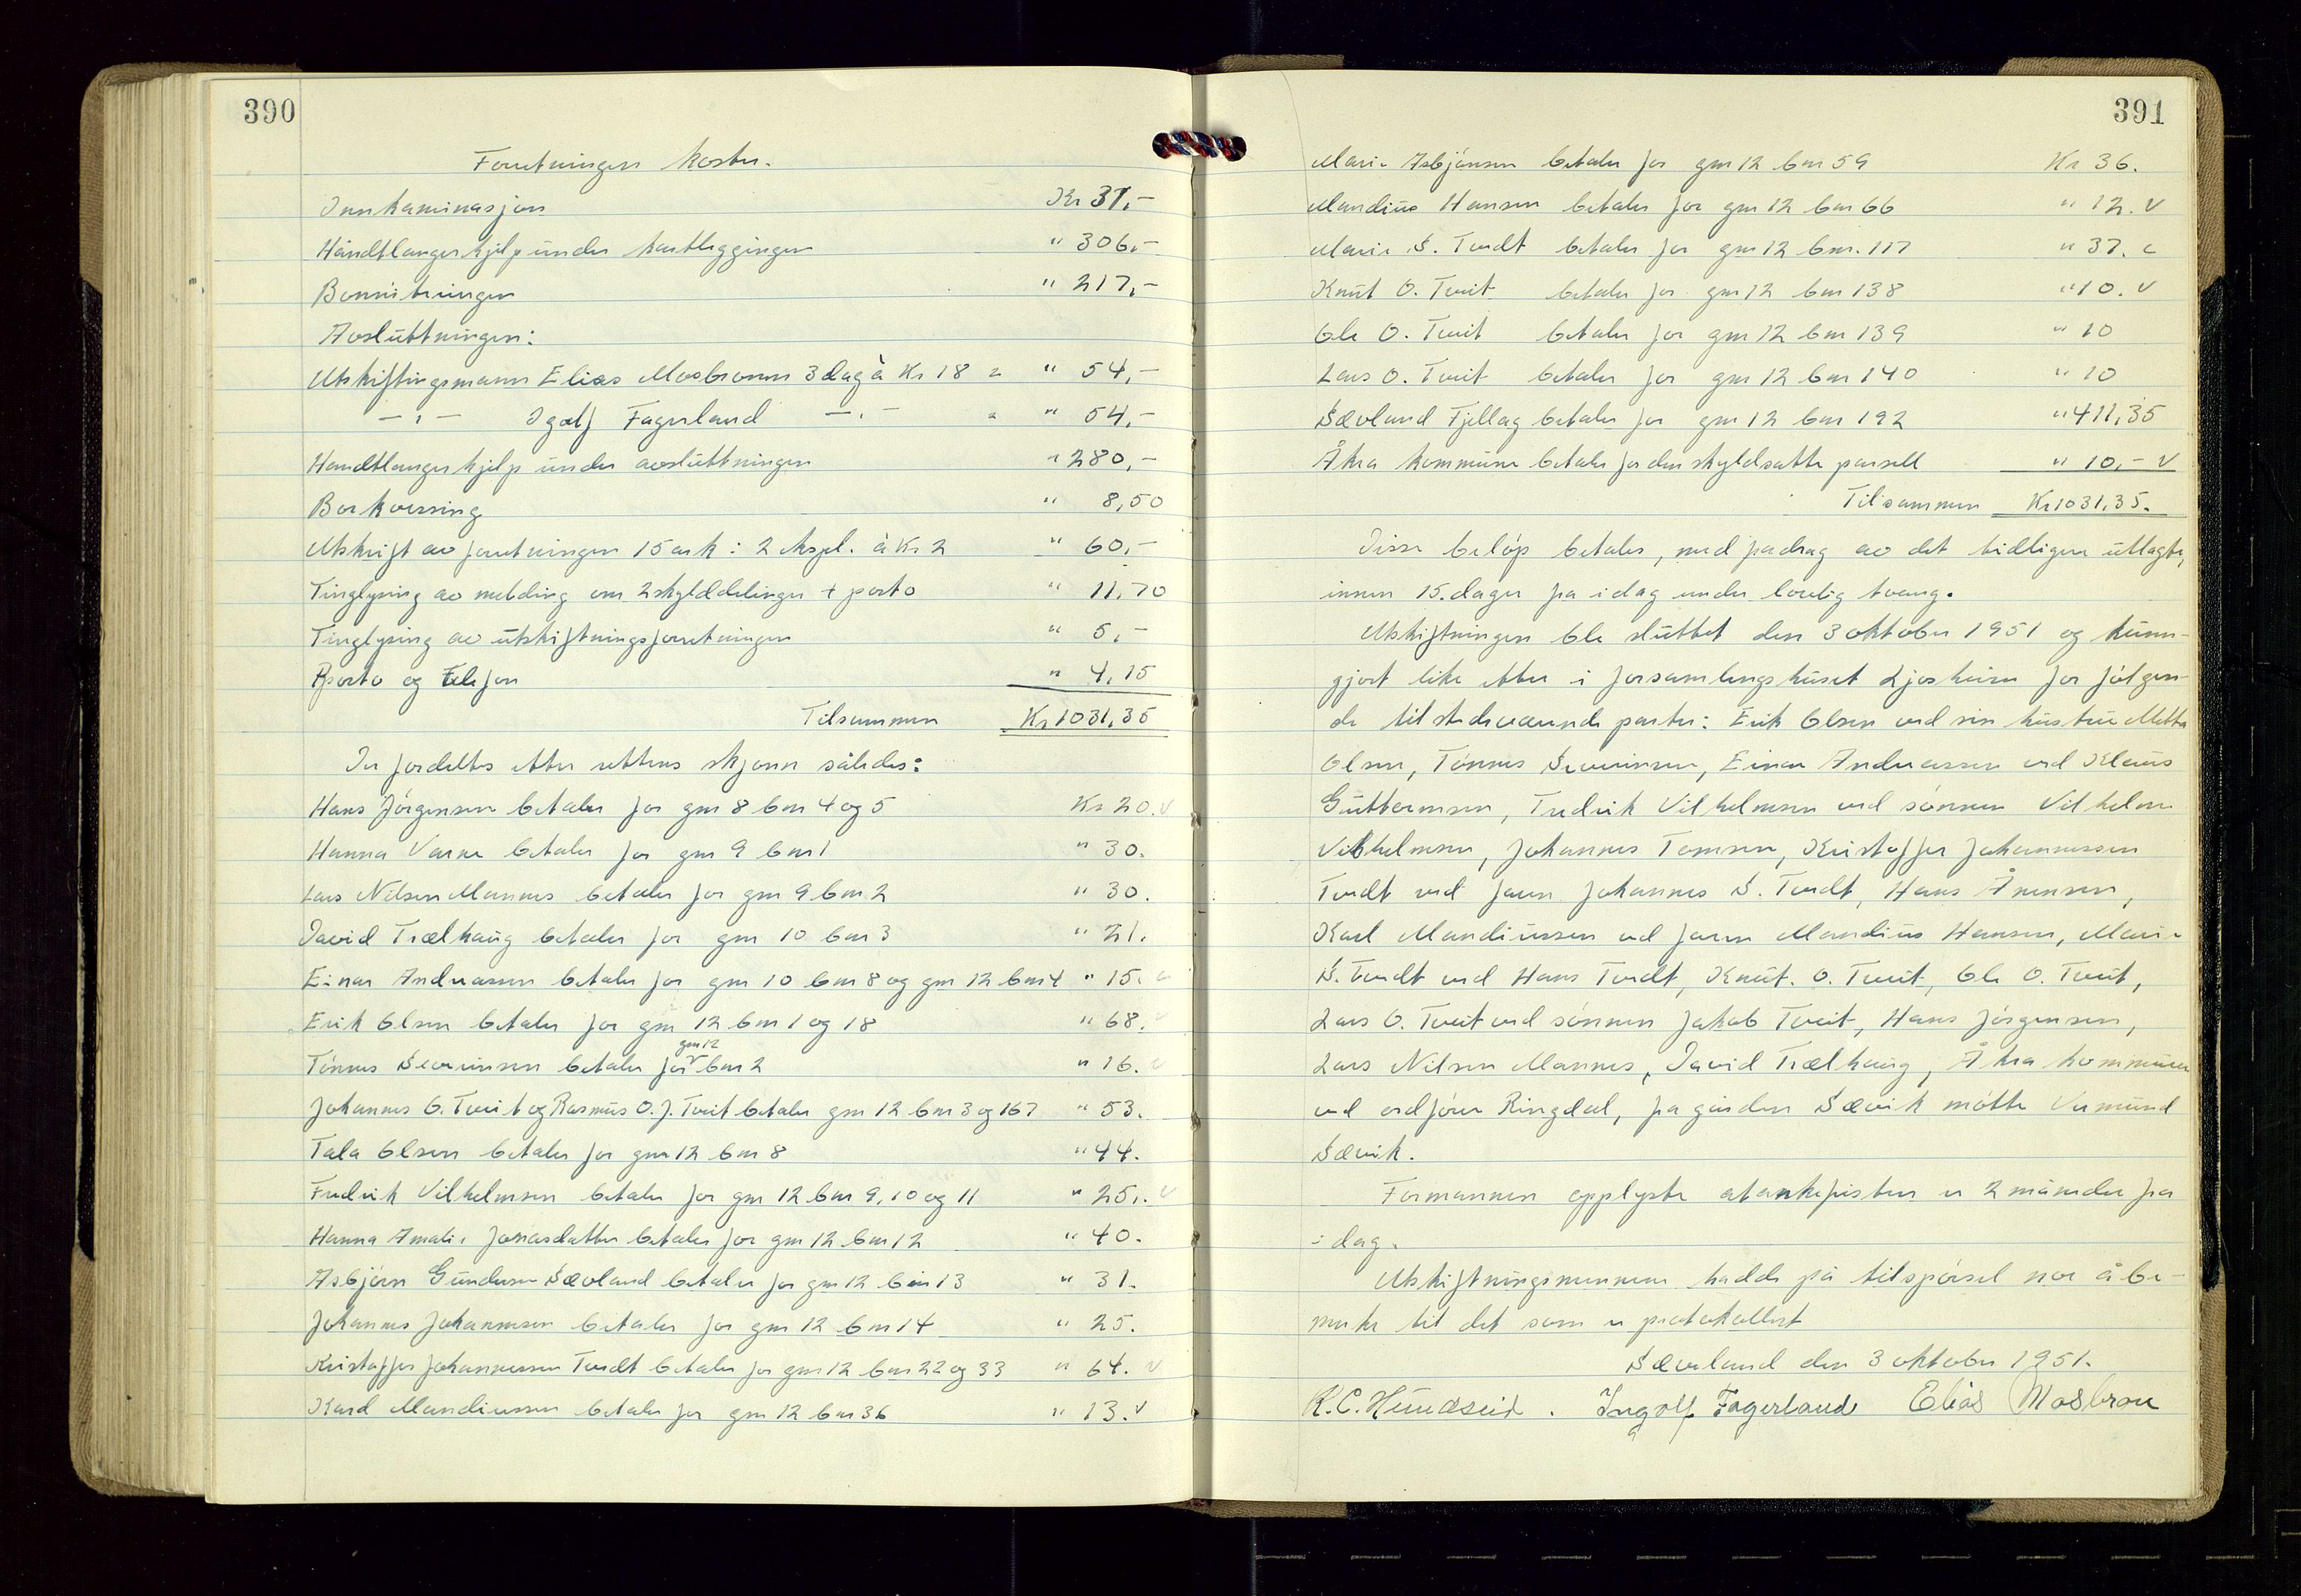 390
Forretningen koster.
Innkaminasjon Kr 31,-
Håndtlangerhjelp under kartleggingen " 306,-
Bonniteringen " 217,-
Avsluttningen:
Utskiftingsmann Elias Mosbronn 3 dag à Kr 18 = " 54,-
-"- Igolf Fagerland -"- = " 54,-
Handtlangerhjelp under avsluttningen " 280,-
Bortvising " 8,50
Utskrift av forretningen 15 ark i 2 ekspl. à Kr 2 " 60,-
Tinglysing av melding om 2 skylddelinger + porto " 11,70
Tinglysing av utskiftningsforretningen " 5,-
Porto og telefon " 4,15
Tilsammen Kr 1031,35
Der fordeltes etter rettens skjønn således:
Hans Jörgensen betaler for gnr 8 bnr 4 og 5 Kr 20. v
Hanna Varne betaler for gnr 9 bnr 1 " 30.
Lars Nilsen Mannes betaler for gnr 9 bnr 2 " 30.
David Trælhaug betaler for gnr 10 bnr 3 " 21.
Einar Andreassen betaler for gnr 10 bnr 8 og gnr 12 bnr 4 " 15. v
Erik Olsen betaler for gnr 12 bnr 1 og 18 " 68. v
Tönnes Severinsen betaler for gnr 12 bnr 2 " 16. v
Johannes O. Tveit og Rasmus O. J. Tveit betaler gnr 12 bnr 3 og 167 " 53.
Tala Olsen betaler for gnr 12 bnr 8 " 44.
Fredrik Vilhelmsen betaler for gnr 12 bnr 9, 10 og 11 " 25,. v
Hanna Amalie Jonasdatter betaler for gnr 12 bnr 12 " 40.
Asbjörn Gundersen Sævland betaler for gnr 12 bnr 13 " 31.
Johannes Johannesen betaler for gnr 12 bnr 14 " 25.
Kristoffer Johannessen Tvedt betaler for gnr 12 bnr 22 og 33 " 64. v
Karl Mandiussen betaler for gnr 12 bnr 36 " 13. v
391
Marie Asbjönsen betaler for gnr 12 bnr 59 Kr 36.
Mandius Hansen betaler for gnr 12 bnr 66 " 12. v
Marie S. Tvedt betaler for gnr 12 bnr. 117 " 37. v
Knut O. Tveit betaler for gnr 12 bnr 138 " 10. v
Ole O. Tveit betaler for gnr 12 bnr 139 " 10
Lars O. Tveit betaler for gnr 12 bnr 140 " 10
Sævland Fjellag betaler for gnr 12 bnr 192 " 411,35
Åkra kommune betaler for den skyldsatte parsell " 10,- v
Tilsammen Kr 1031,35.
Disse belöp betales, med fradrag av det tidligere utlagte,
innen 15. dager fra idag under lovlig tvang.
Utskiftningen ble sluttet den 3 oktober 1951 og kunn-
gjort like etter i forsamlingshuset Ljosheim for fölgen-
de tilstedeværende parter: Erik Olsen ved sin hustru Metta
Olsen, Tönnes Severinsen, Einar Andreassen ved Klaus
Guttormsen, Fredrik Vilhelmsen ved sönnen Vilhelm
Vilhelmsen, Johannes Tomsen, Kristoffer Johannessen
Tvedt ved faren Johannes S. Tvedt, Hans Ånensen,
Karl Mandiussen ved faren Mandius Hansen, Marie
S. Tvedt ved Hans Tvedt, Knut. O. Tveit, Ole O. Tveit,
Lars O. Tveit ved sönnen Jakob Tveit, Hans Jörgensen,
Lars Nilsen Mannes, David Trælhaug, Åkra kommune
ved ordförer Ringdal, fra gården Sævik mötte Vermund
Sævik.
Formannen opplyste at ankefristen er 2 måneder fra
idag.
Utskiftningsmennene hadde på tilspörsel noe å be-
merke til det som er protokollert
Sævland den 3 oktober 1951.
K.C. Hundseid. Ingolf Fagerland Elias Mosbron